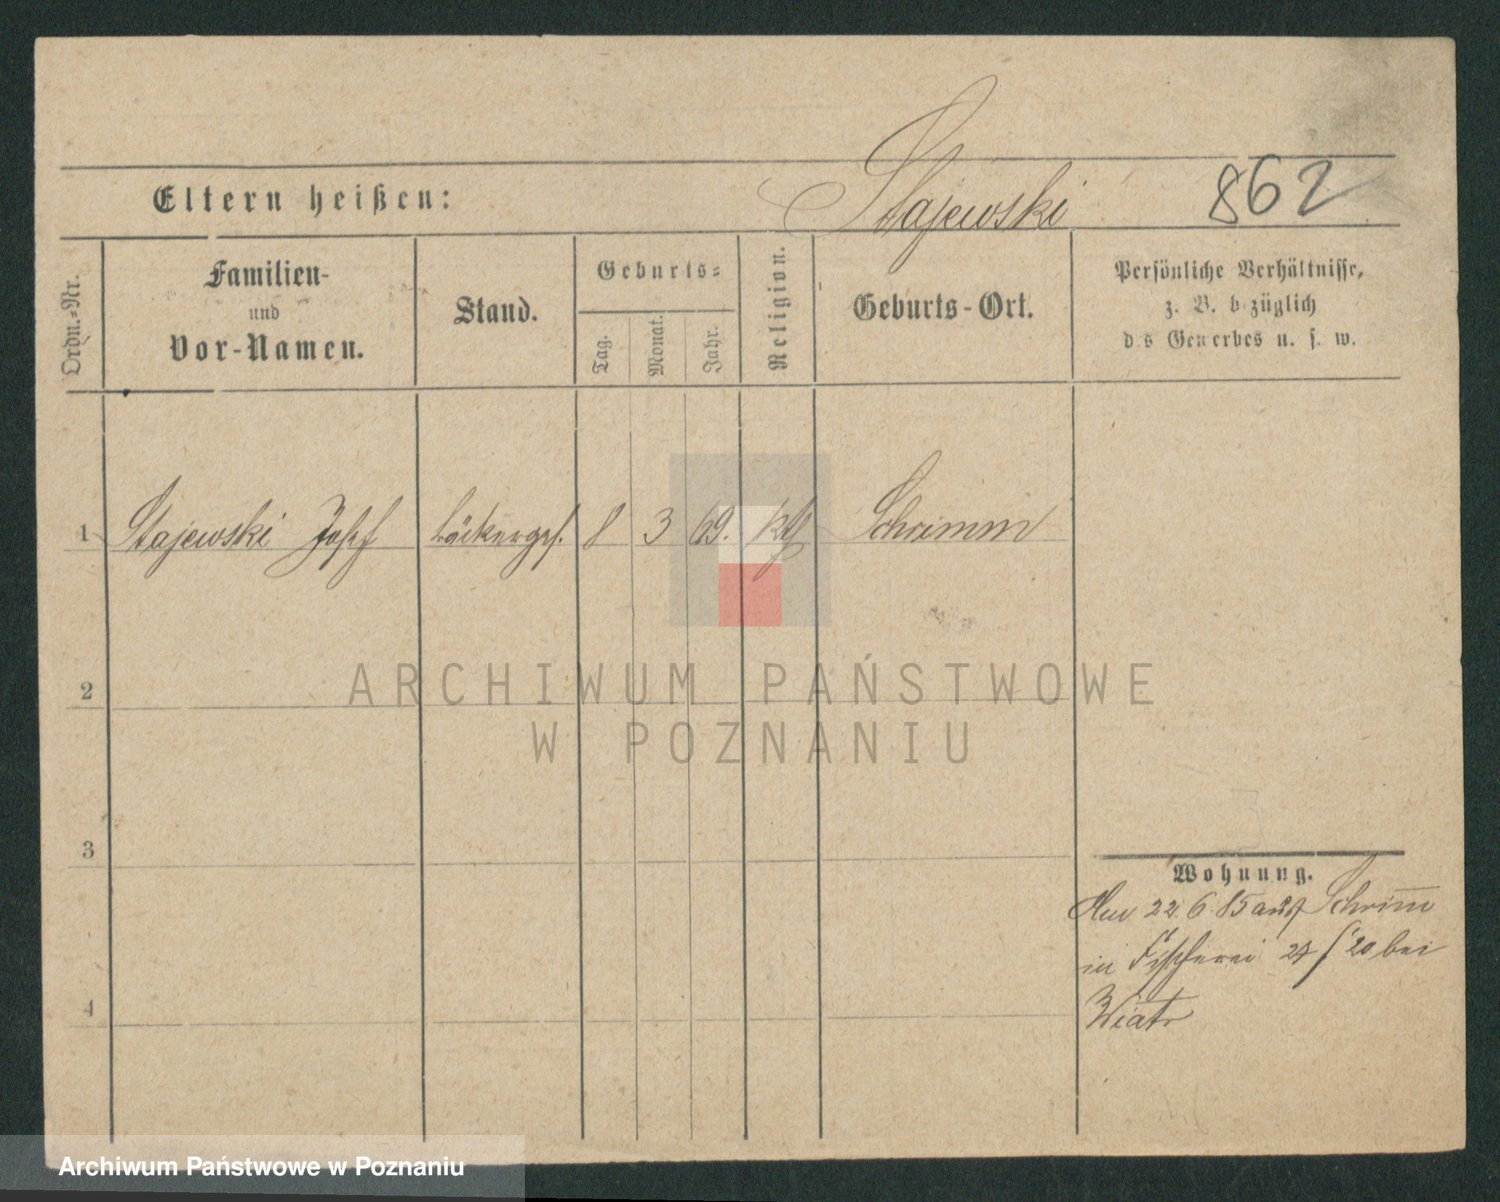 Stajewski 862
Eltern heißen:
Ordn.-Nr.
Familien-
und
Vor-Namen.
Stand.
Geburts-
Tag.
Monat.
Jahr.
Religion.
Geburts-Ort.
Persönliche Verhältnisse,
z. B. bezüglich
des Gewerbes u. s. w.
1 Stajewski Josef Bäckerges. 8 3 69. kth Schrimm
2
3
4
Wohnung.
22. 6. 85 aus Schrim̅
in Fischerei 24/20 bei
Wiatr
ARCHIWUM PAŃSTWOWE
W POZNANIU
Archiwum Państwowe w Poznaniu